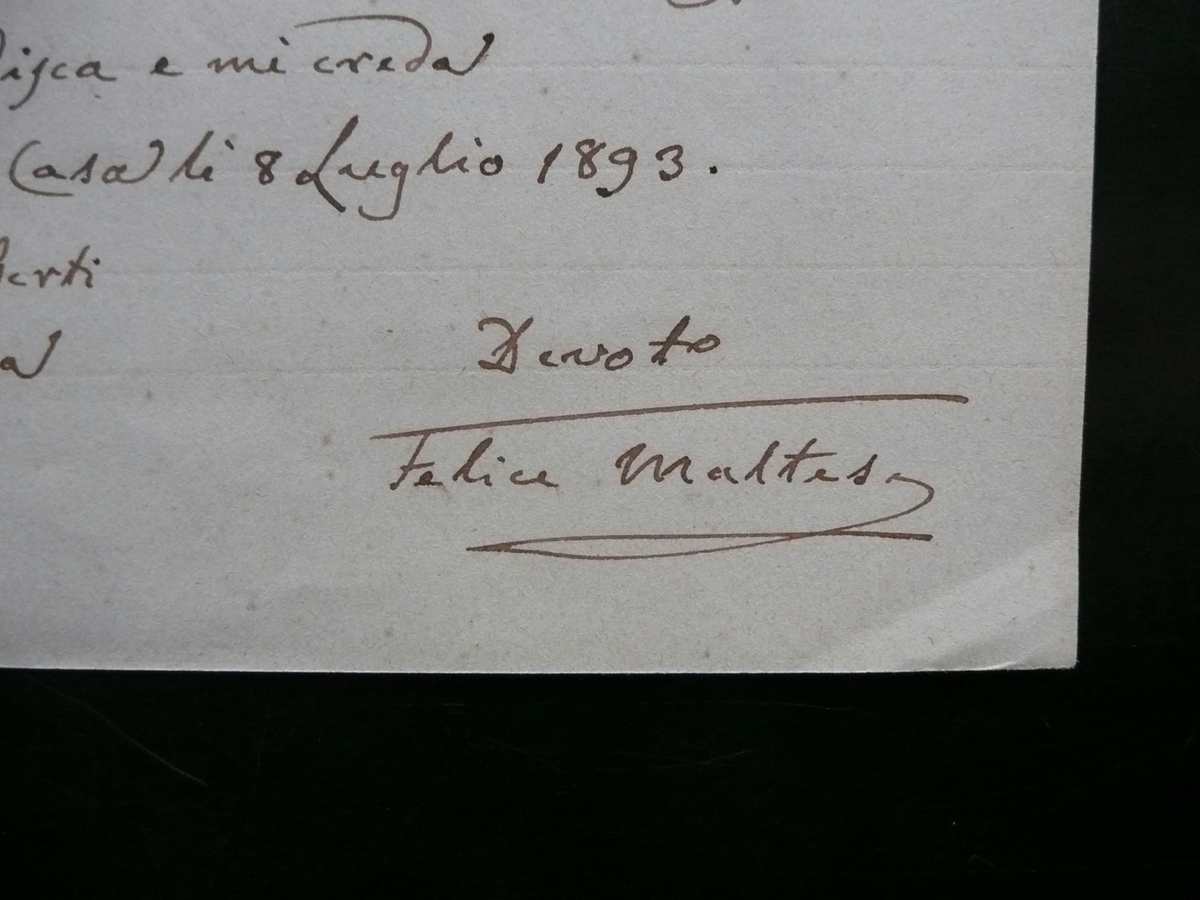 e mi creda
Casa li 8 Luglio 1893.
Devoto
Felice Maltese